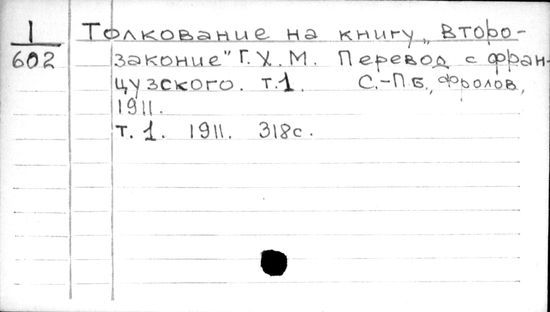 1 Толкование на книгу „Второ-
602 законие" Г.Х.М. Перевод с фран-
цузского. т.1. С.-Пб., Фролов,
1911.
т. 1. 1911. 318с.